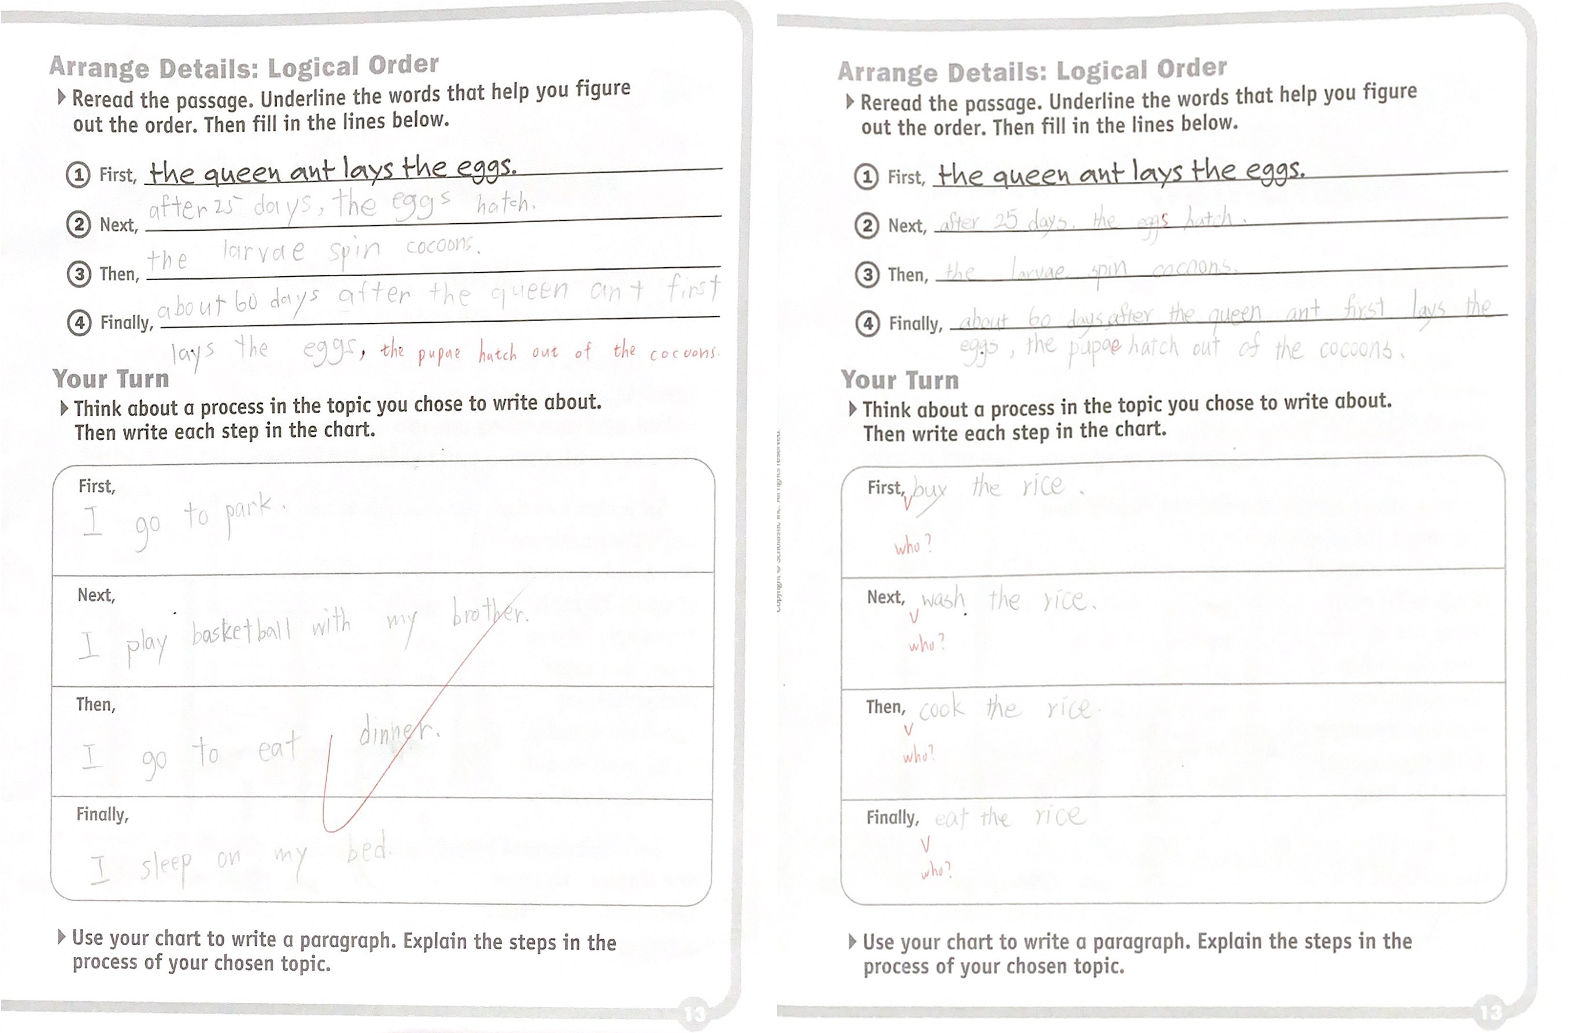 Arrange Details: Logical Order
Reread the passage. Underline the words that help you figure
out the order. Then fill in the lines below.
1 First, the queen ant lays the eggs.
2 Next, after 25 days, the eggs hatch.
3 Then, the larvae spin cocoons.
4 Finally, about 60 days after the queen ant first
lays the eggs, the pupae hatch out of the cocoons.
Your Turn
Think about a process in the topic you chose to write about.
Then write each step in the chart.
First,
I go to park.
Next,
I play basketball with my brother.
Then,
I go to eat dinner.
Finally,
I sleep on my bed.
Use your chart to write a paragraph. Explain the steps in the
process of your chosen topic.
13
Arrange Details: Logical Order
Reread the passage. Underline the words that help you figure
out the order. Then fill in the lines below.
1 First, the queen ant lays the eggs.
2 Next, after 25 days, the eggs hatch.
3 Then, the larvae spin cocoons.
4 Finally, about 60 days after the queen ant first lays the
eggs, the pupae hatch out of the cocoons.
Your Turn
Think about a process in the topic you chose to write about.
Then write each step in the chart.
First, buy the rice.
who?
Next, wash the rice.
who?
Then, cook the rice.
who?
Finally, eat the rice
who?
Use your chart to write a paragraph. Explain the steps in the
process of your chosen topic.
13